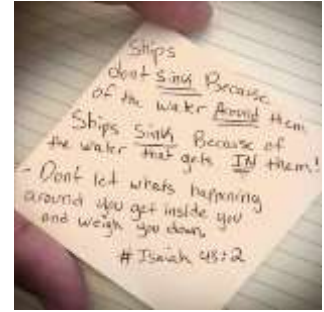 Ships
dont Sink Because
of the water Around them
Ships Sink Because of
the water that gets IN them!
- Dont let whats happening
around you get inside you
and weigh you down.
# Isaiah 43:2